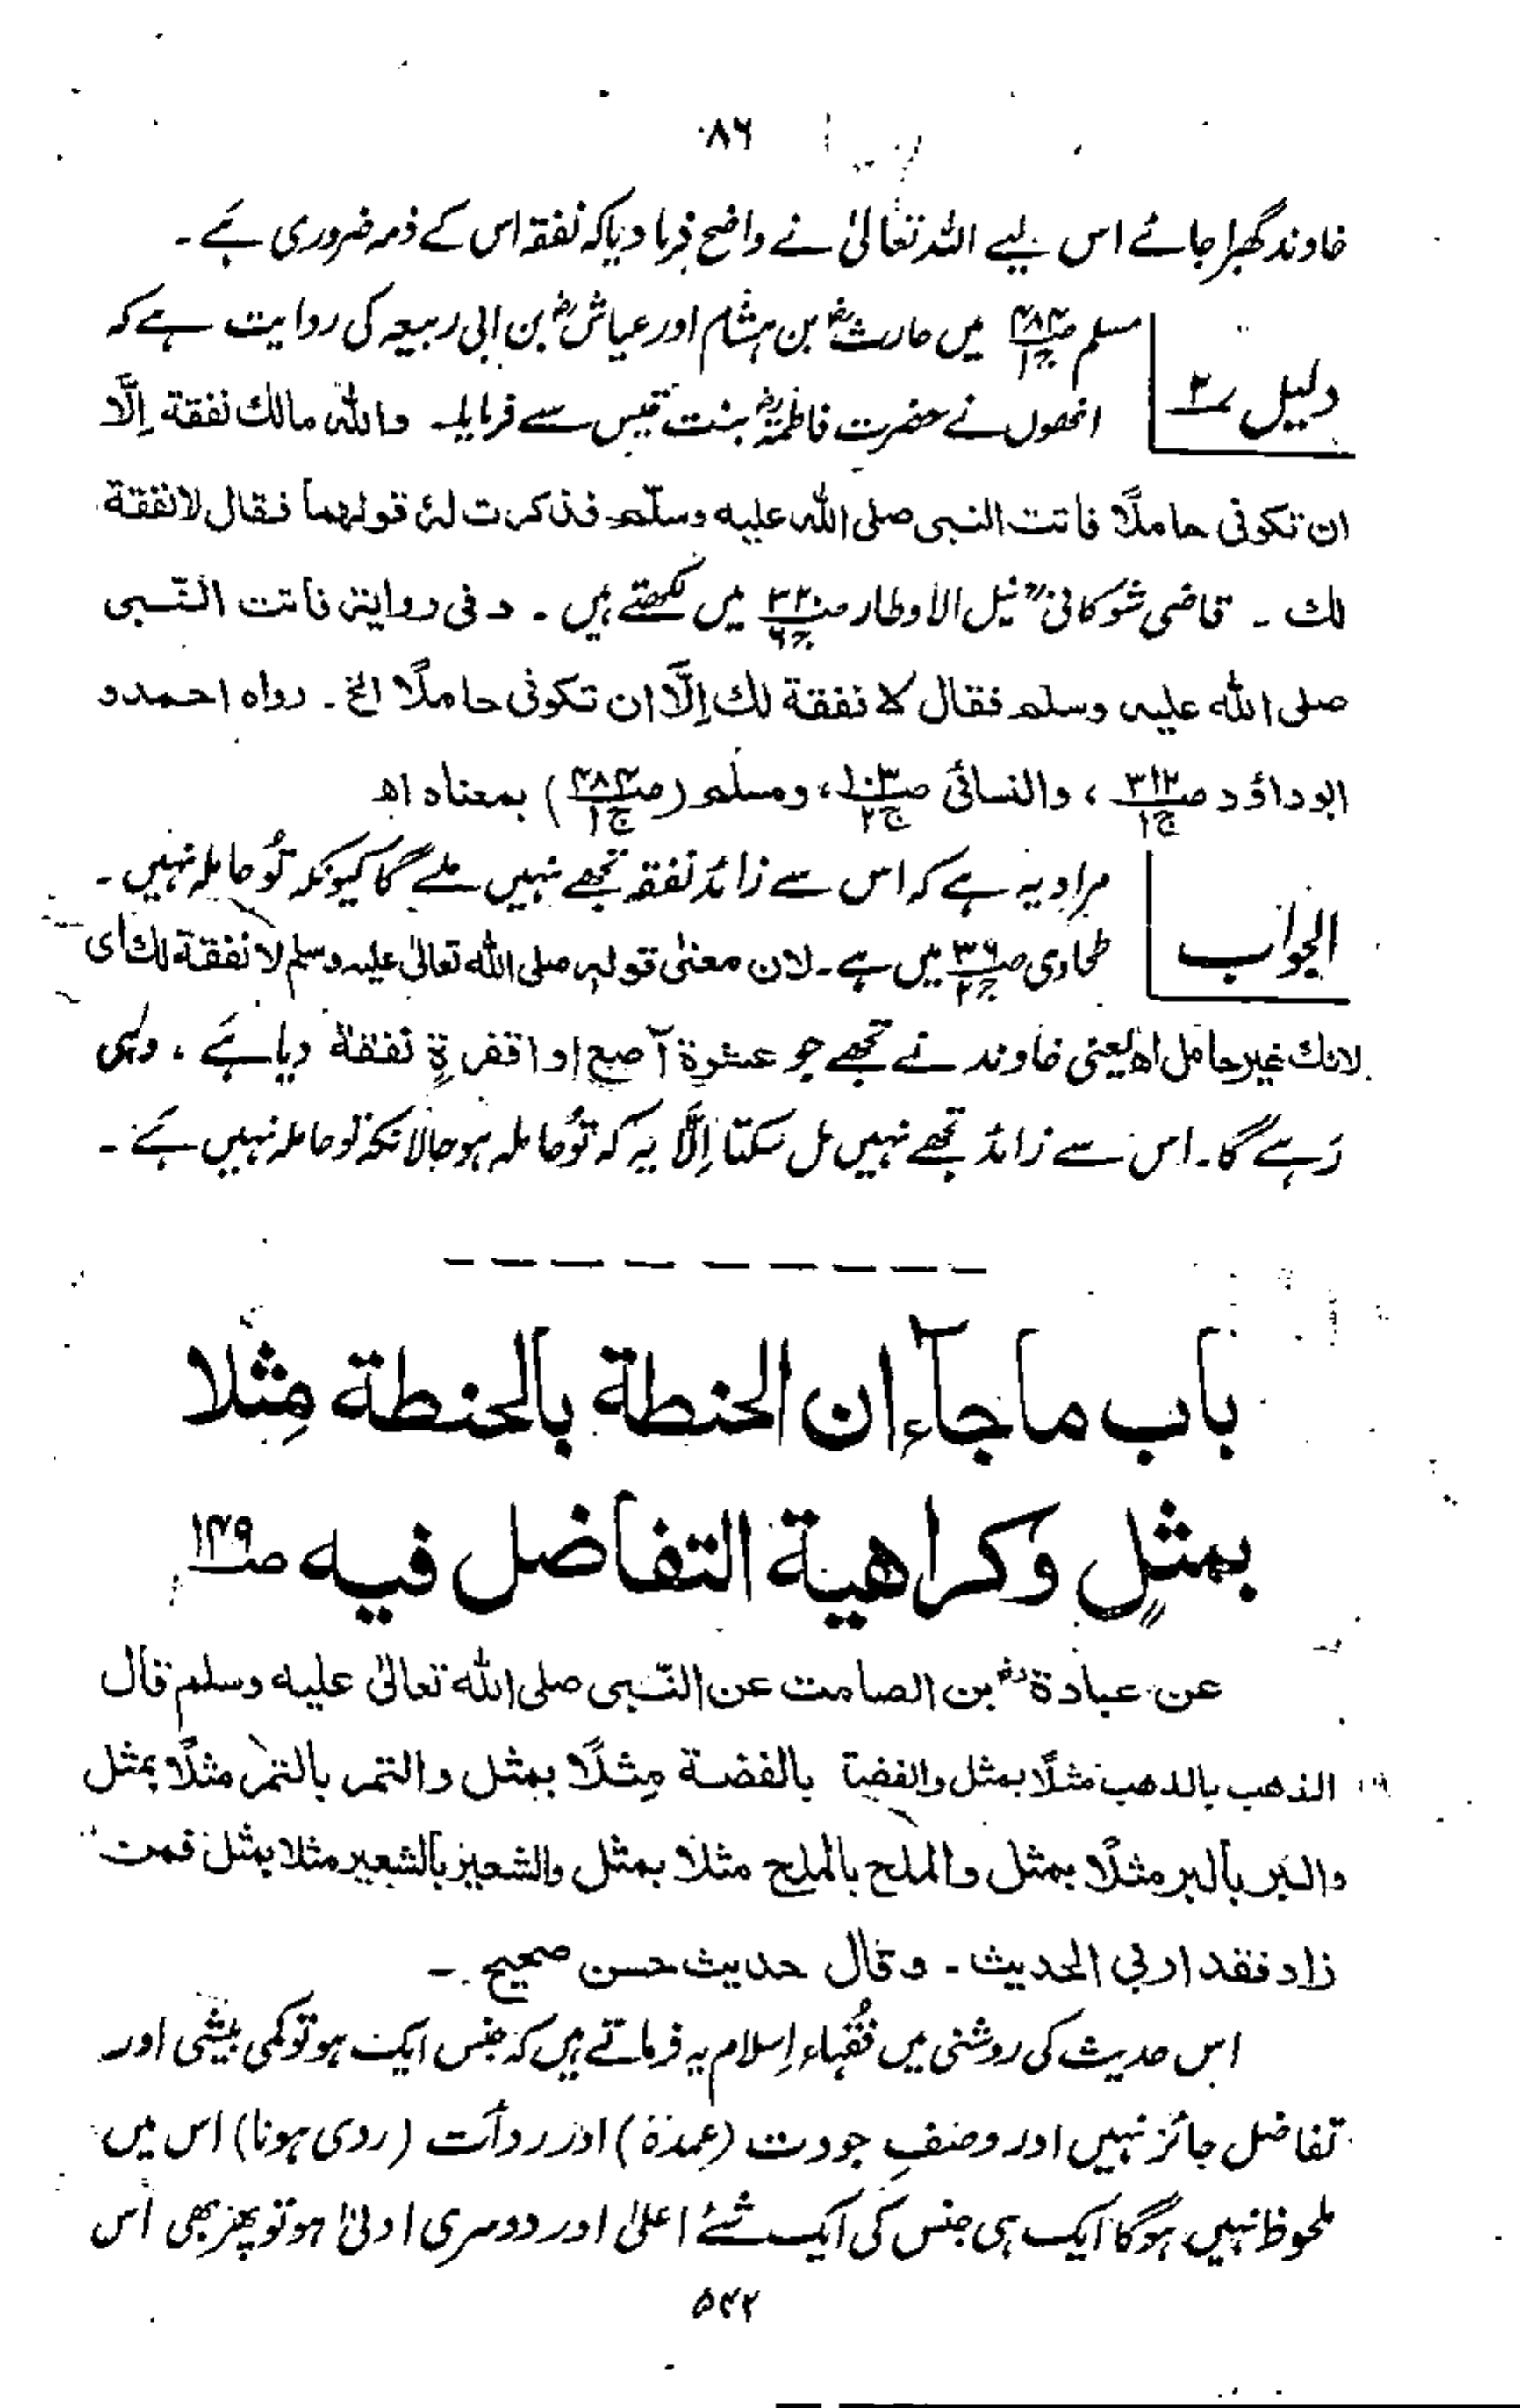 ۸۶
خاوند گھبرا جائے اس لیے اللہ تعالیٰ نے واضح فرما دیا کہ نفقہ اس کے ذمہ ضروری ہے ۔
دلیل ۳ مسلم ص۴۸۴ ج۱ میں حارثؓ بن ہشام اور عیاشؓ بن ابی ربیعہ کی روایت ہے کہ
انھوں نے حضرت فاطمہؓ بنت قیس سے فرمایا۔ واللہ مالك نفقة اِلَّا
ان تکونی حاملًا فاتت النبی صلی اللہ علیه وسلّم فذکرت لهٗ قولهما فقال لا نفقة
لك ۔ قاضی شوکانیؒ نیل الاوطار ص۳۲۰ ج۶ میں لکھتے ہیں ۔ وفی روایة فاتت النّبی
صلی اللہ علیه وسلم فقال لا نفقة لك اِلَّا ان تکونی حاملًا الخ ۔ رواه احمد و
ابو داؤد ص۳۱۲ ج۱ ، والنسائی ص۱۰۳ ج۲، ومسلم (ص۴۸۴ ج۱) بمعناه اھ
الجواب مراد یہ ہے کہ اس سے زائد نفقہ تجھے نہیں ملے گا کیونکہ تُو حاملہ نہیں ۔
طحاوی ص۳۶ ج۲ میں ہے ۔ لان معنی قوله صلی اللہ تعالیٰ علیه وسلم لا نفقة لك ای
لانك غیر حامل اھ یعنی خاوند نے تجھے جو عشرة آصع او اقفزةٍ نفقة دیا ہے ، وہی
رہے گا ۔ اس سے زائد تجھے نہیں مل سکتا اِلَّا یہ کہ تُو حاملہ ہو حالانکہ تو حاملہ نہیں ہے ۔
باب ما جآء ان الحنطة بالحنطة مِثلا
بمثلٍ وکراهیة التفاضل فیه ص۱۴۹
عن عبادةؓ بن الصامت عن النّبی صلی اللہ تعالیٰ علیه وسلم قال
الذهب بالذهب مثلًا بمثل والفضة بالفضة مِثلًا بمثل والتمر بالتمر مثلًا بمثل
والبر بالبر مثلًا بمثل والملح بالملح مثلًا بمثل والشعیر بالشعیر مثلا بمثل فمن
زاد فقد اربی الحدیث ۔ وقال حدیث حسن صحیح ۔
اس حدیث کی روشنی میں فُقہاء اِسلام یہ فرماتے ہیں کہ جنس ایک ہو تو کمی بیشی اور
تفاضل جائز نہیں اور وصفِ جودت (عمدہ) اور ردأت (ردی ہونا) اس میں
ملحوظ نہیں ہوگا ایک ہی جنس کی ایک شئے اعلیٰ اور دوسری ادنیٰ ہو تو پھر بھی اُس
۵۴۲